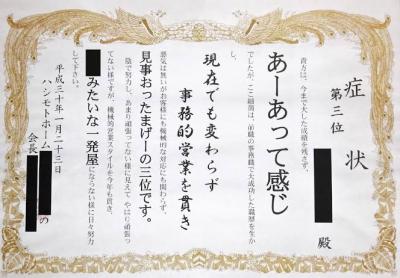 症状
第三位
殿
貴方は、今まで大した成績を残さず、
あーあって感じ
でしたが、ここ細部は、前職の事務職で大成功した職歴を生か
し、
現在でも変わらず
事務的営業を貫き
悪気は無いがお客様にも機械的な対応にも関わらず、
見事おったまげーの三位です。
陰で努力し、あまり頑張ってない様に見えて やはり頑張っ
てない様ですが、機械的営業スタイルを今年も貫き、
みたいな一発屋にならない様に日々努力
して下さい。
平成三十年一月二十三日
ハシモトホーム
会長
の